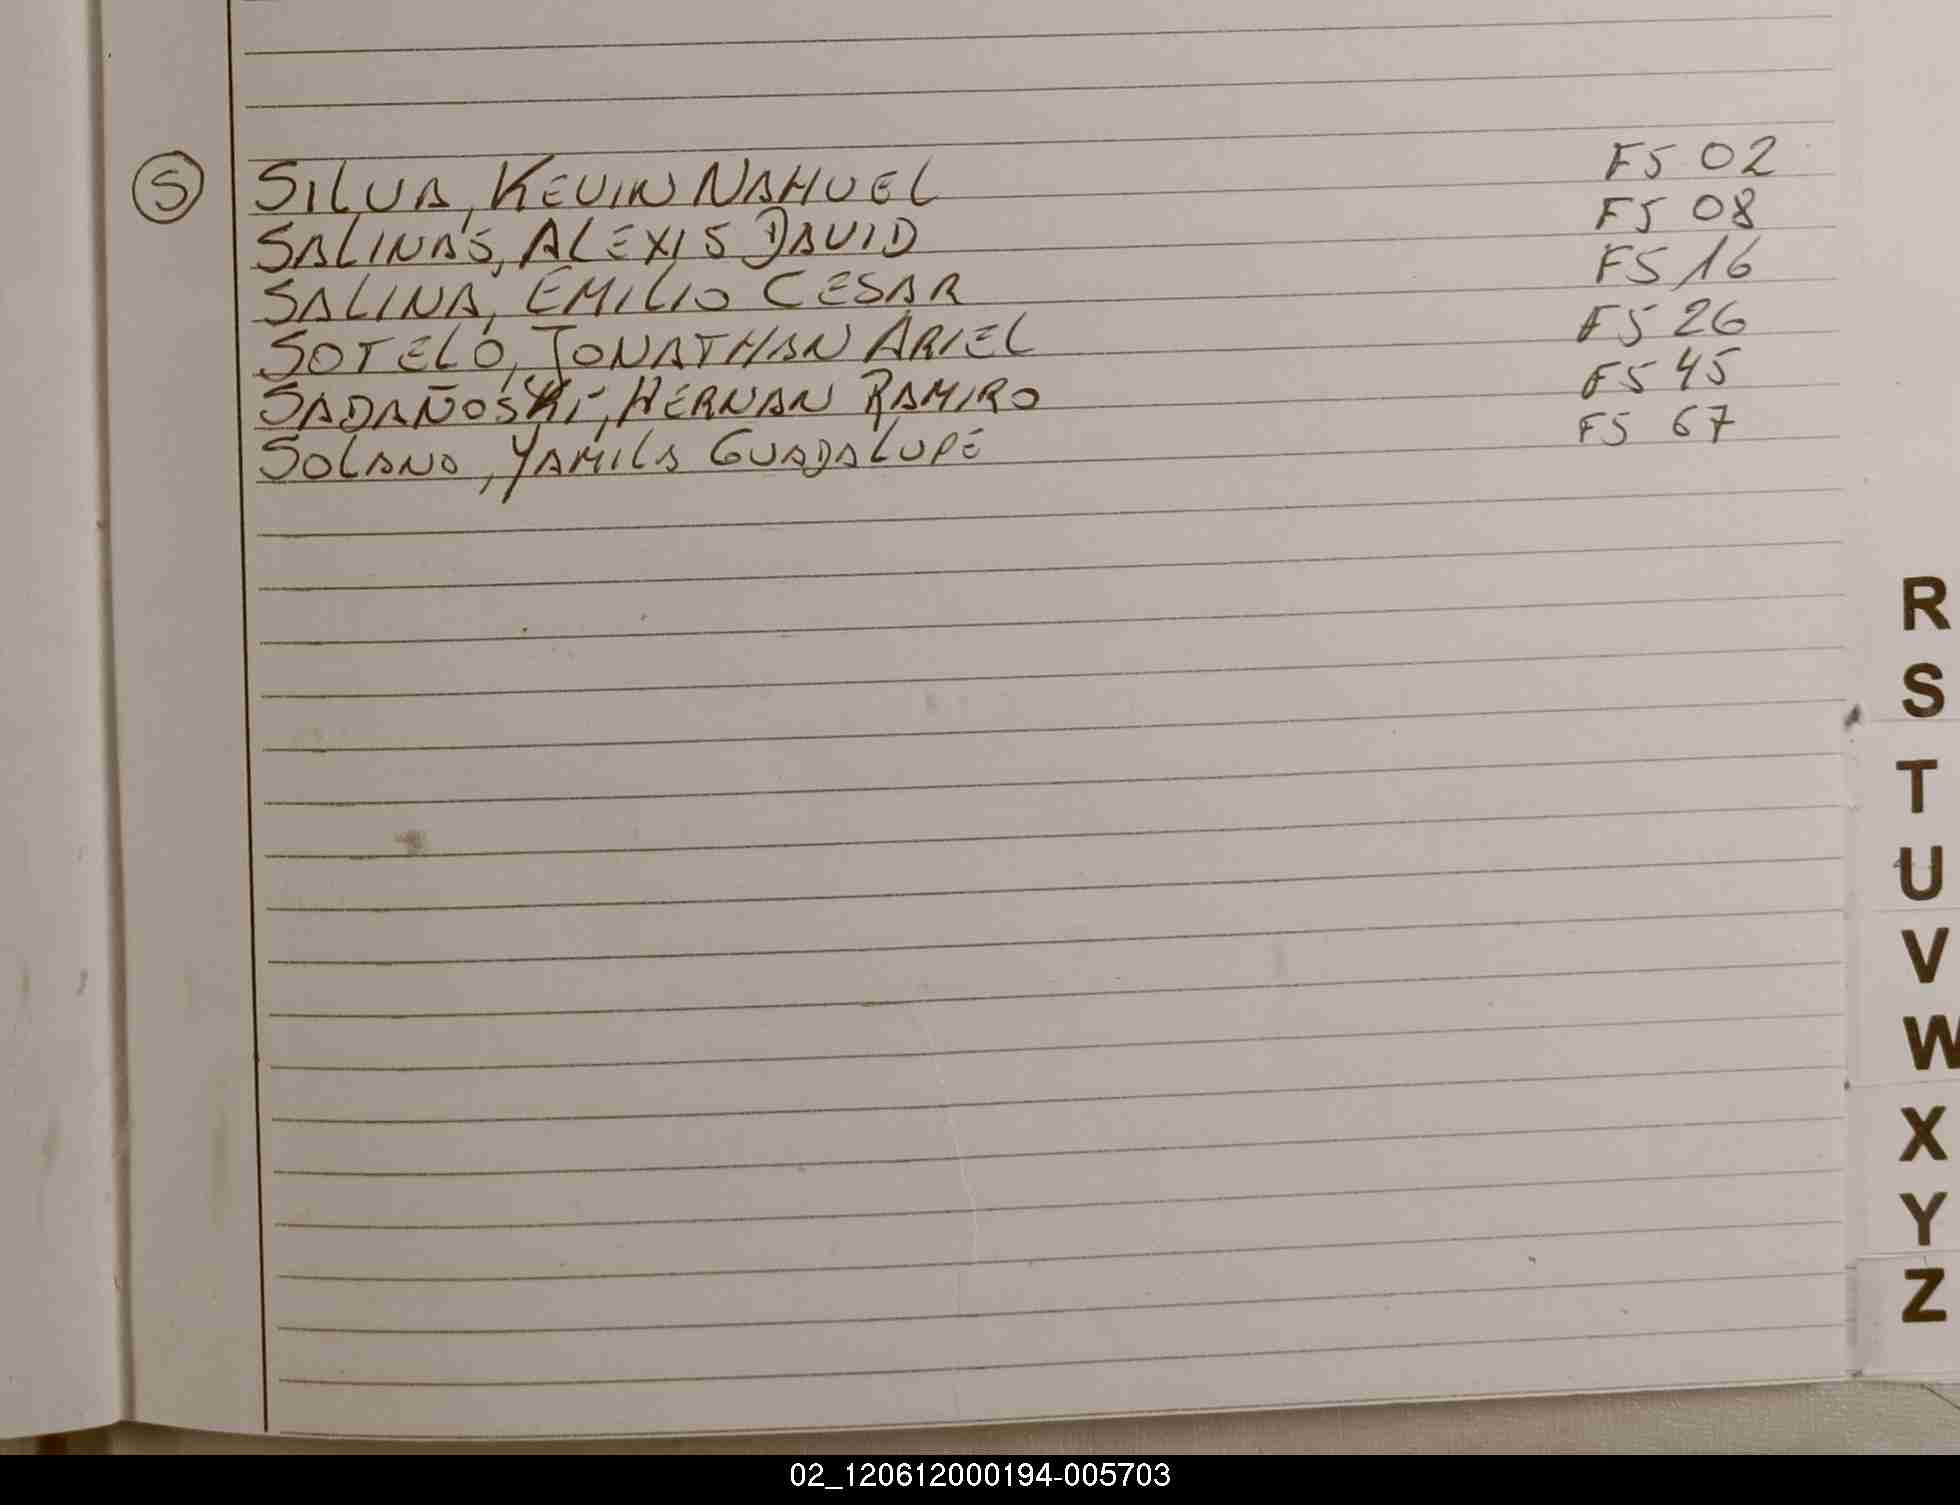 S SILVA, KEVIN NAHUEL FS 02
SALINAS, ALEXIS DAVID FS 08
SALINA, EMILIO CESAR FS 16
SOTELO, JONATHAN ARIEL FS 26
HERNAN RAMIRO FS 45
SOLANO, YAMILA GUADALUPE FS 67
R
S
T
U
V
W
X
Y
Z
02_120612000194-005703